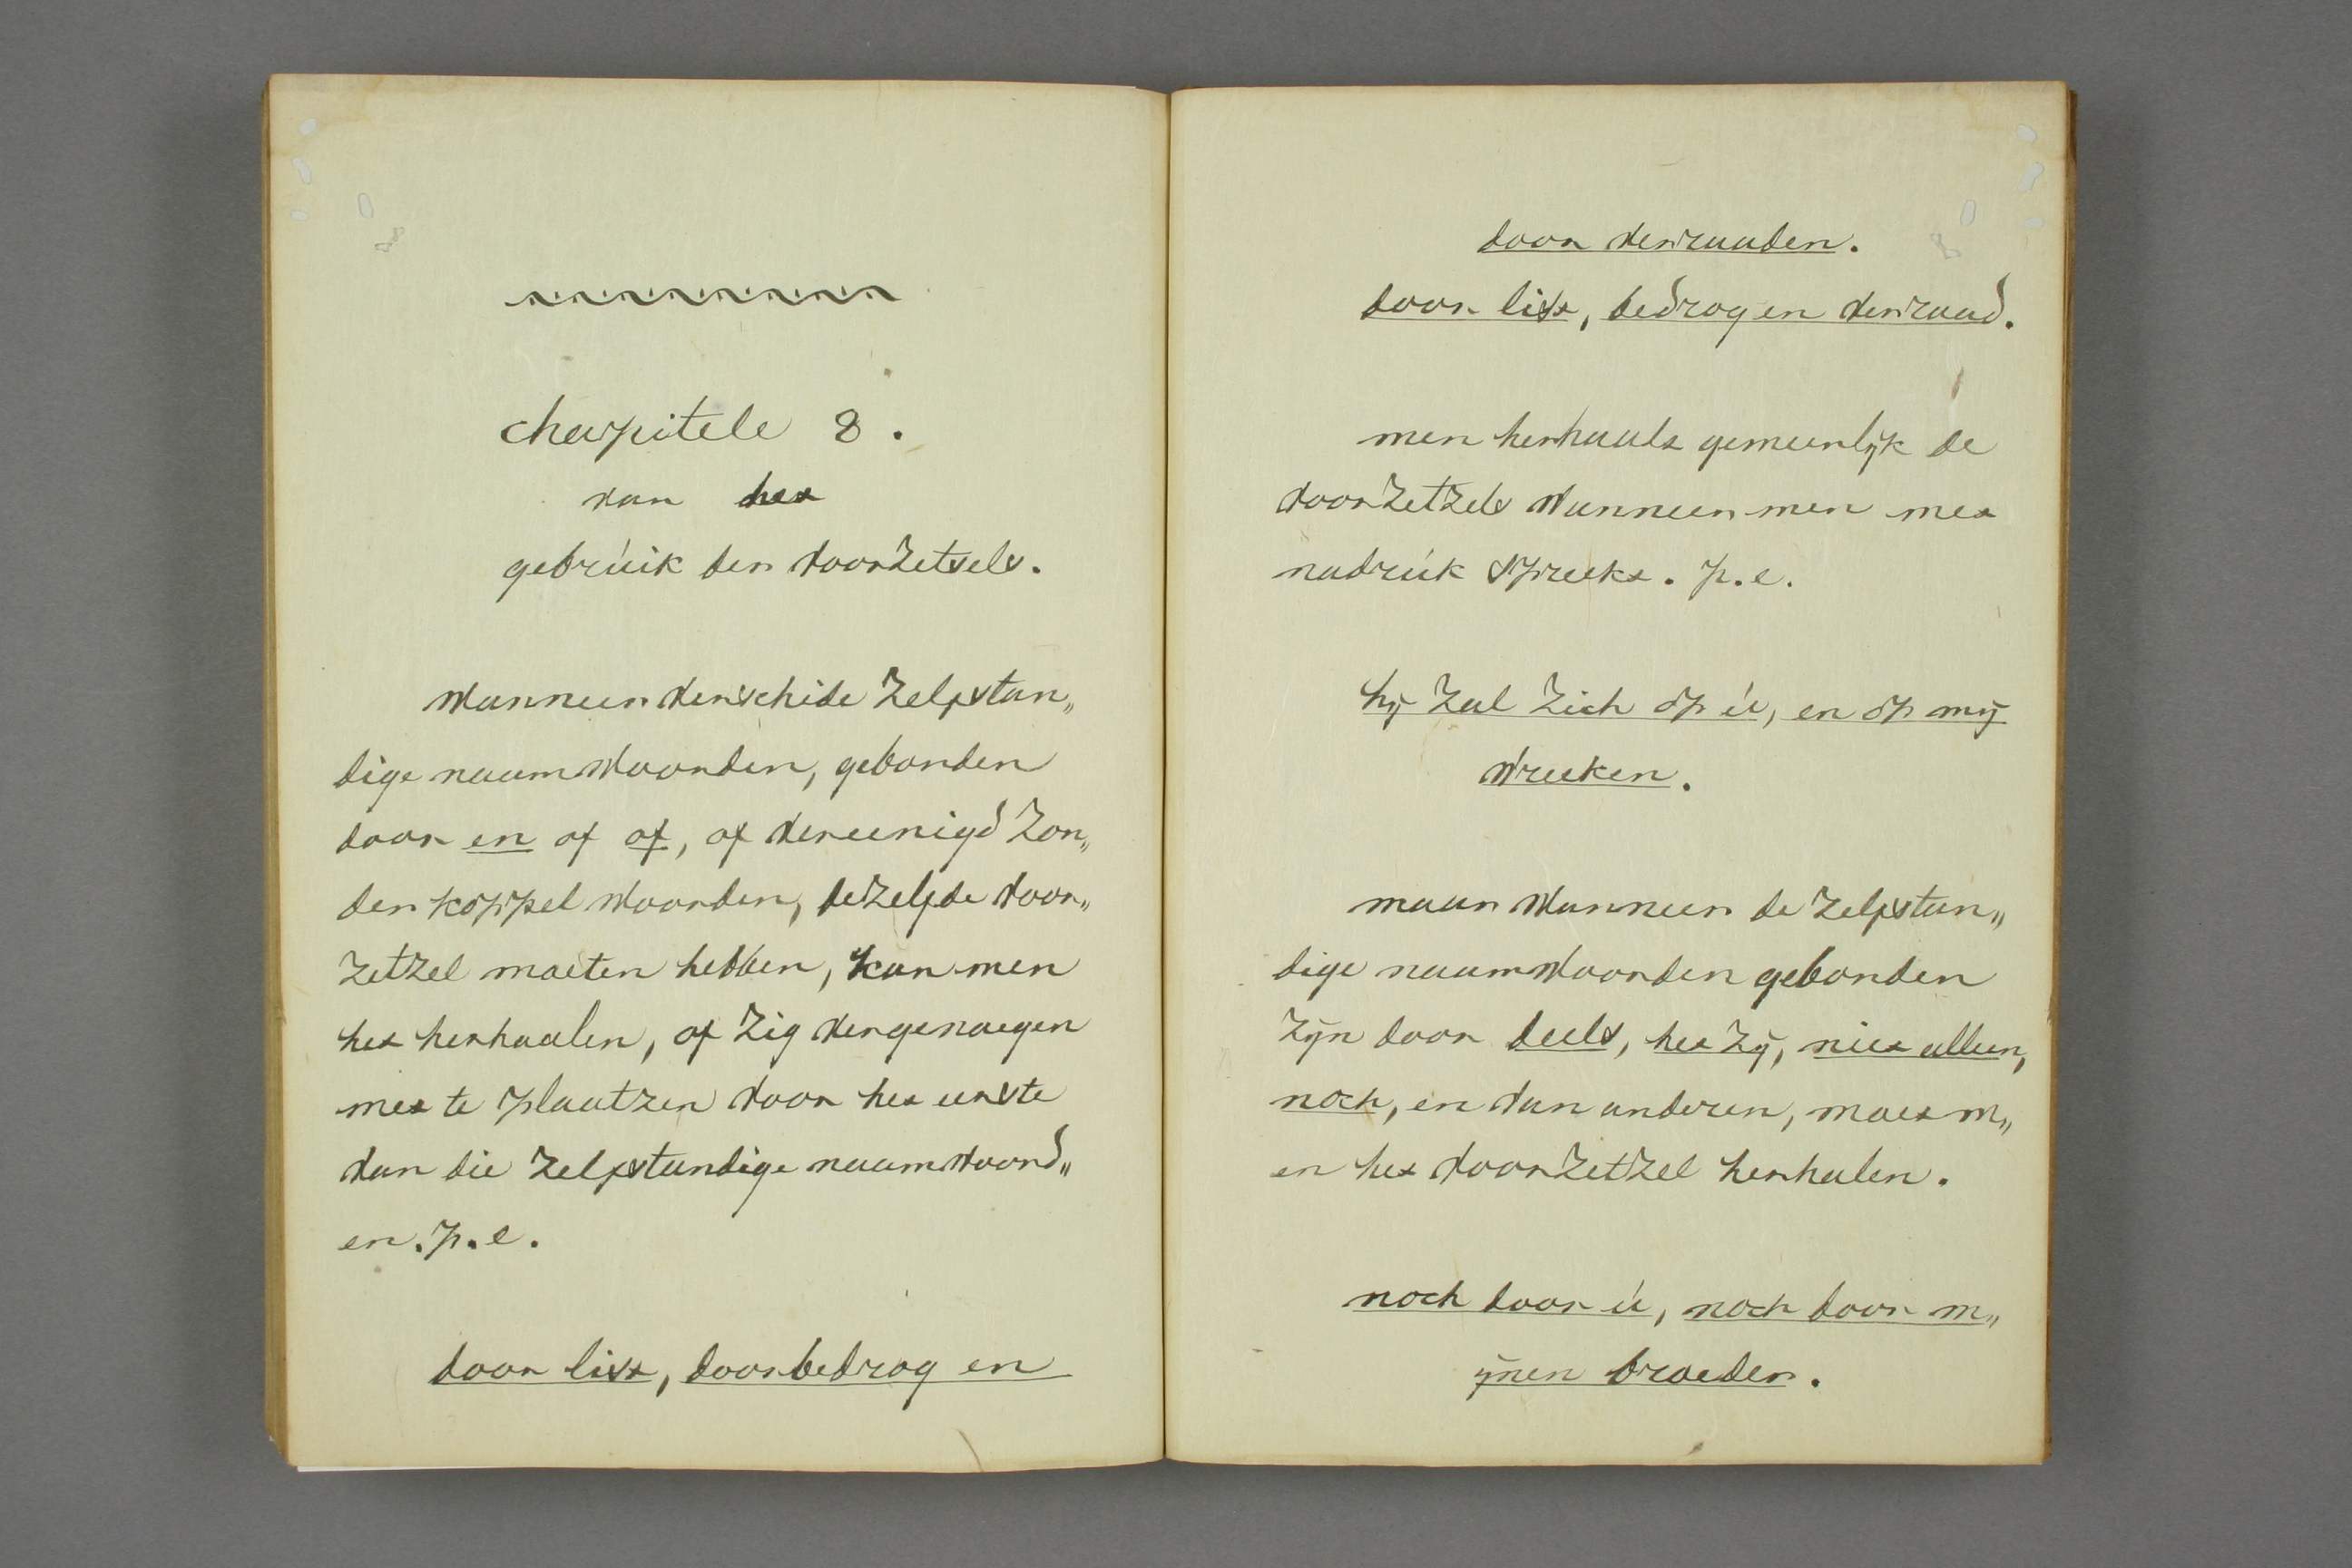 chapitele 8.
van het
gebrúik der voorzetsels.
wanneer verschide zelfstan„
dige naamwoorden, gebonden
door en of of, of vereenigd zon„
der koppel woorden, dezelfde voor„
zetzel moeten hebben, kan men
het herhaalen, of zig vergenoegen
met te plaatzen voor het eerste
van die zelfstandige naamwoord„
en. p. e.
door list, door bedrog en
door verraaden.
door list, bedrog en verraad.
men herhaalt gemeenlijk de
voorzetzels wanneer men met
nadrúk spreekt. p. e.
hij zal zich op ú, en op mij
wreeken.
maar wanneer de zelfstan„
dige naamwoorden gebonden
zijn door deels, het zij, niet alleen,
noch, en van anderen, moet m„
en het voorzetzel herhalen.
noch door ú, noch door m„
ijnen broeder.